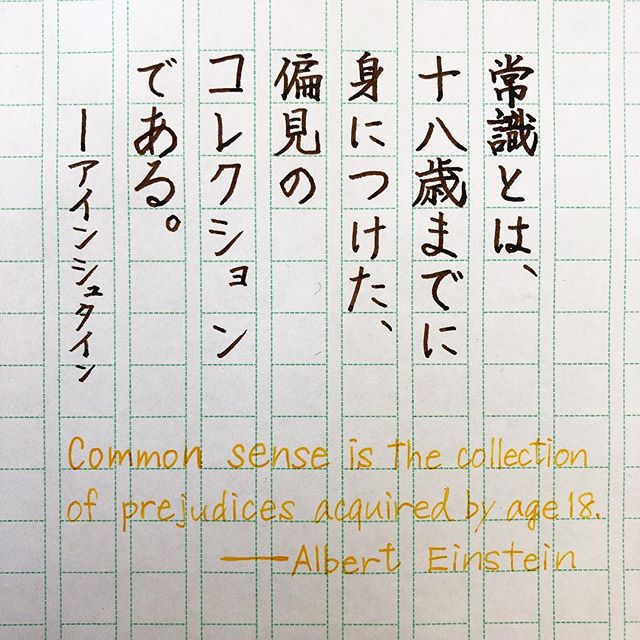 常識とは、
十八歳までに
身につけた、
偏見の
コレクション
である。
ーアインシュタイン
Common sense is the collection
of prejudices acquired by age 18.
—Albert Einstein